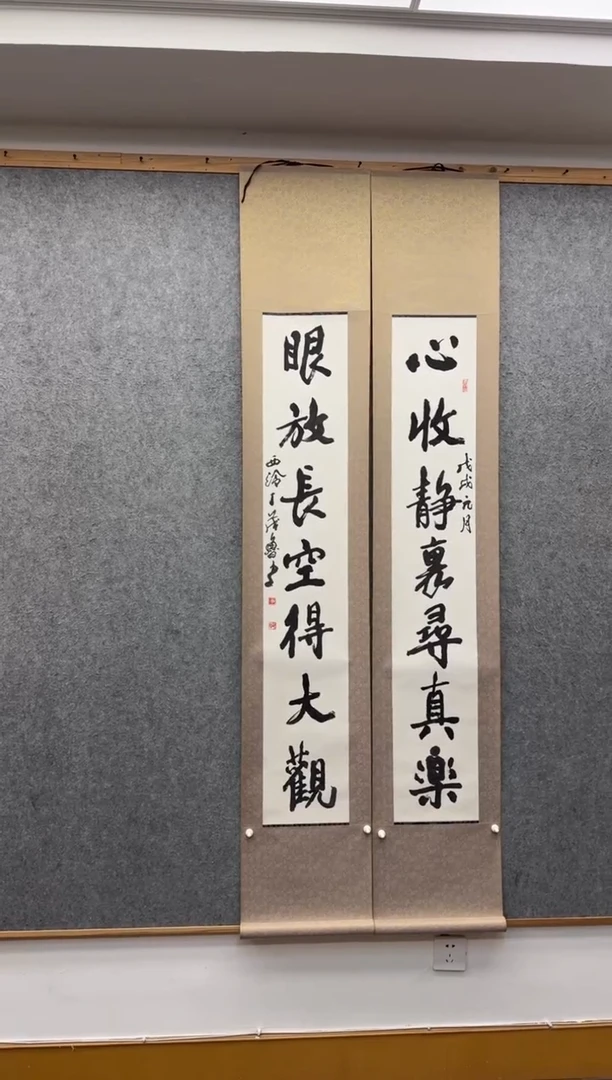 心收静裏尋真樂
戊戌元月
眼放長空得大觀
西泠丁茂魯書